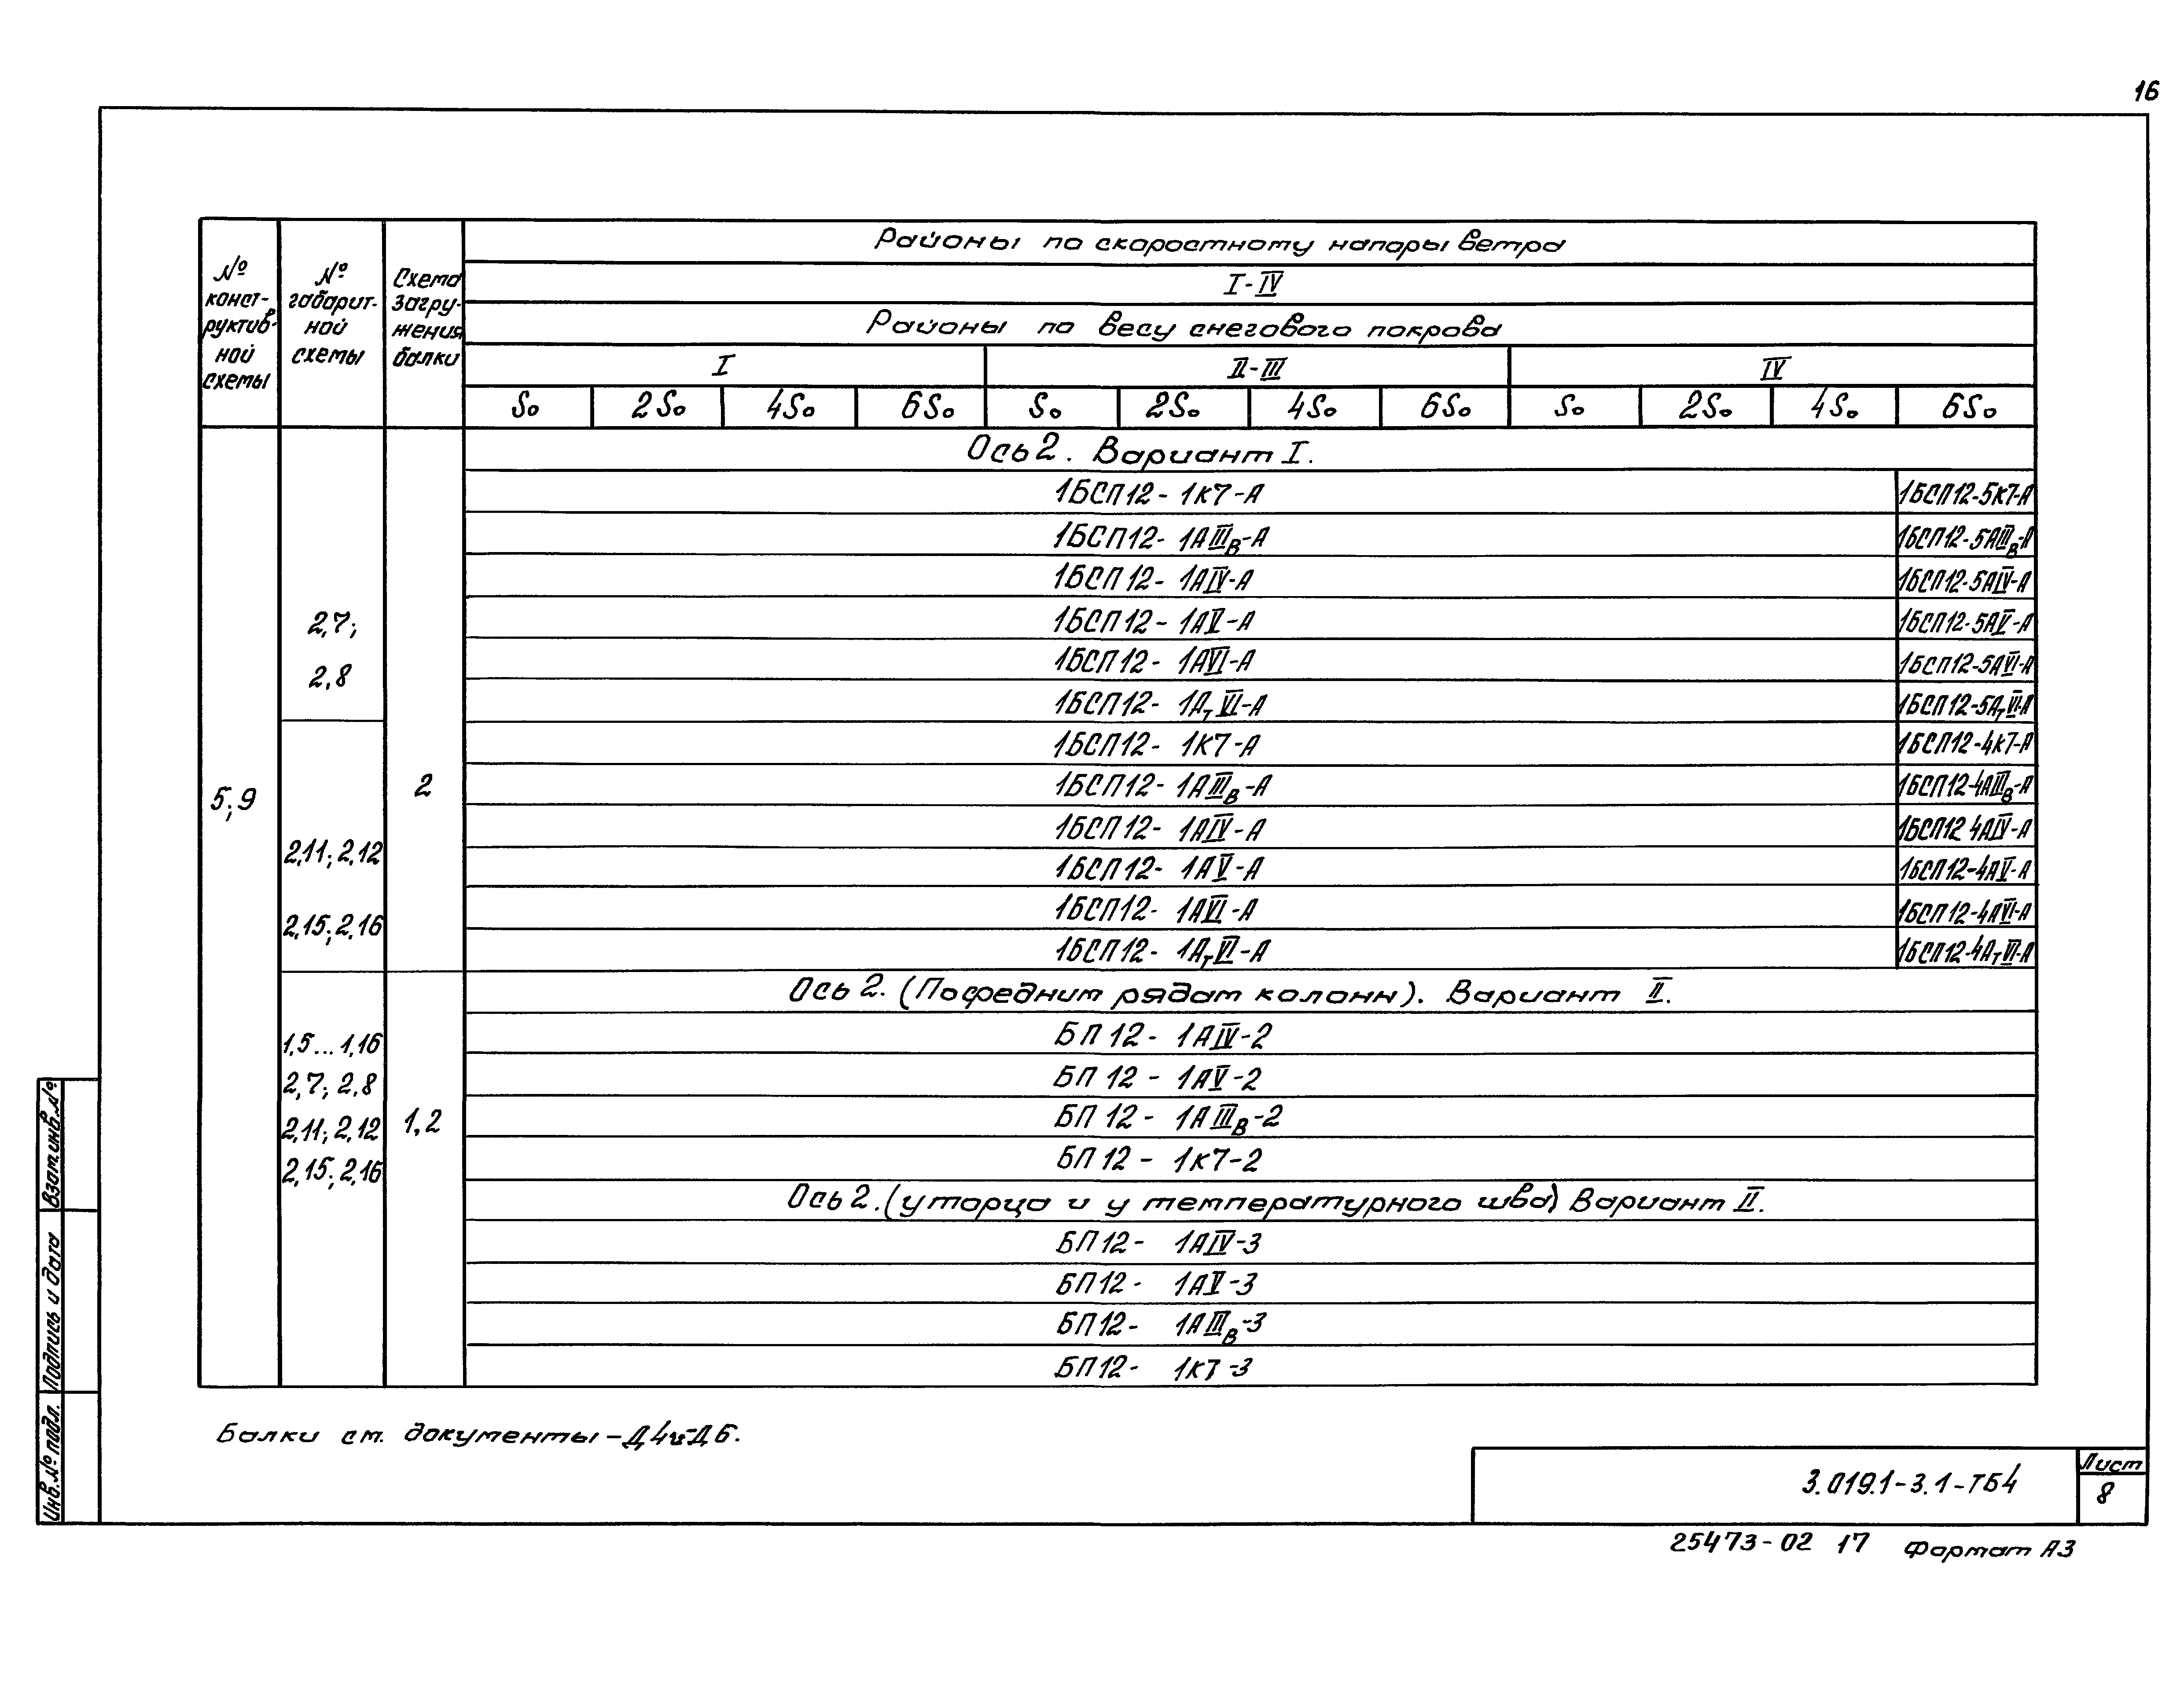 16
№ конструктивной схемы
№ габаритной схемы
Схема загружения балки
Районы по скоростному напоры ветра
I-IV
Районы по весу снегового покрова
I II-III IV
S₀ 2S₀ 4S₀ 6S₀ S₀ 2S₀ 4S₀ 6S₀ S₀ 2S₀ 4S₀ 6S₀
5;9
2,7;
2,8
2
Ось 2. Вариант I.
1БСП12-1К7-А 1БСП12-5К7-А
1БСП12-1АIIIв-А 1БСП12-5АIIIв-А
1БСП12-1АIV-А 1БСП12-5АIV-А
1БСП12-1АV-А 1БСП12-5АV-А
1БСП12-1АVI-А 1БСП12-5АVI-А
1БСП12-1АтVI-А 1БСП12-5АтVI-А
2,11; 2,12
2,15; 2,16
1БСП12-1К7-А 1БСП12-4К7-А
1БСП12-1АIIIв-А 1БСП12-4АIIIв-А
1БСП12-1АIV-А 1БСП12 4АIV-А
1БСП12-1АV-А 1БСП12-4АV-А
1БСП12-1АVI-А 1БСП12-4АVI-А
1БСП12-1АтVI-А 1БСП12-4АтVI-А
1,5...1,16
2,7; 2,8
2,11; 2,12
2,15; 2,16
1,2
Ось 2. (По средним рядам колонн). Вариант II.
БП12-1АIV-2
БП12-1АV-2
БП12-1АIIIв-2
БП12-1К7-2
Ось 2. (у торца и у температурного шва) Вариант II.
БП12-1АIV-3
БП12-1АV-3
БП12-1АIIIв-3
БП12-1К7-3
Балки см. документы -Д4и-Д6.
Взам.инв.№
Подпись и дата
Инв.№ подл.
3.019.1-3.1-ТБ4
Лист
8
25473-02 17 Формат А3